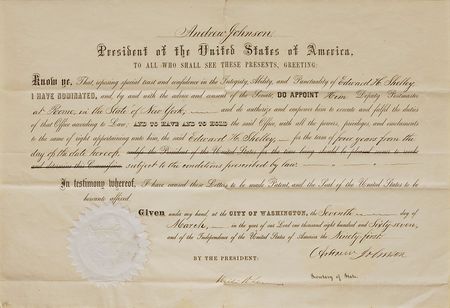 Andrew Johnson
President of the United States of America,
TO ALL WHO SHALL SEE THESE PRESENTS, GREETING:
Know ye, That, reposing special trust and confidence in the Integrity, Ability, and Punctuality of Edward H. Shelley
I HAVE NOMINATED, and by and with the advice and consent of the Senate, DO APPOINT him Deputy Postmaster
at Rome, in the State of New York, and do authorize and empower him to execute and fulfil the duties
of that Office according to Law; AND TO HAVE AND TO HOLD the said Office, with all the powers, privileges, and emoluments
to the same of right appertaining unto him, the said Edward H. Shelley, for the term of four years from the
day of the date hereof, subject to the conditions prescribed by law.
In testimony whereof, I have caused these Letters to be made Patent, and the Seal of the United States to be
hereunto affixed.
Given under my hand, at the CITY OF WASHINGTON, the Seventh day of
March, in the year of our Lord one thousand eight hundred and Sixty-seven,
and of the Independence of the United States of America the Ninety-first.
Andrew Johnson
BY THE PRESIDENT:
Secretary of State.